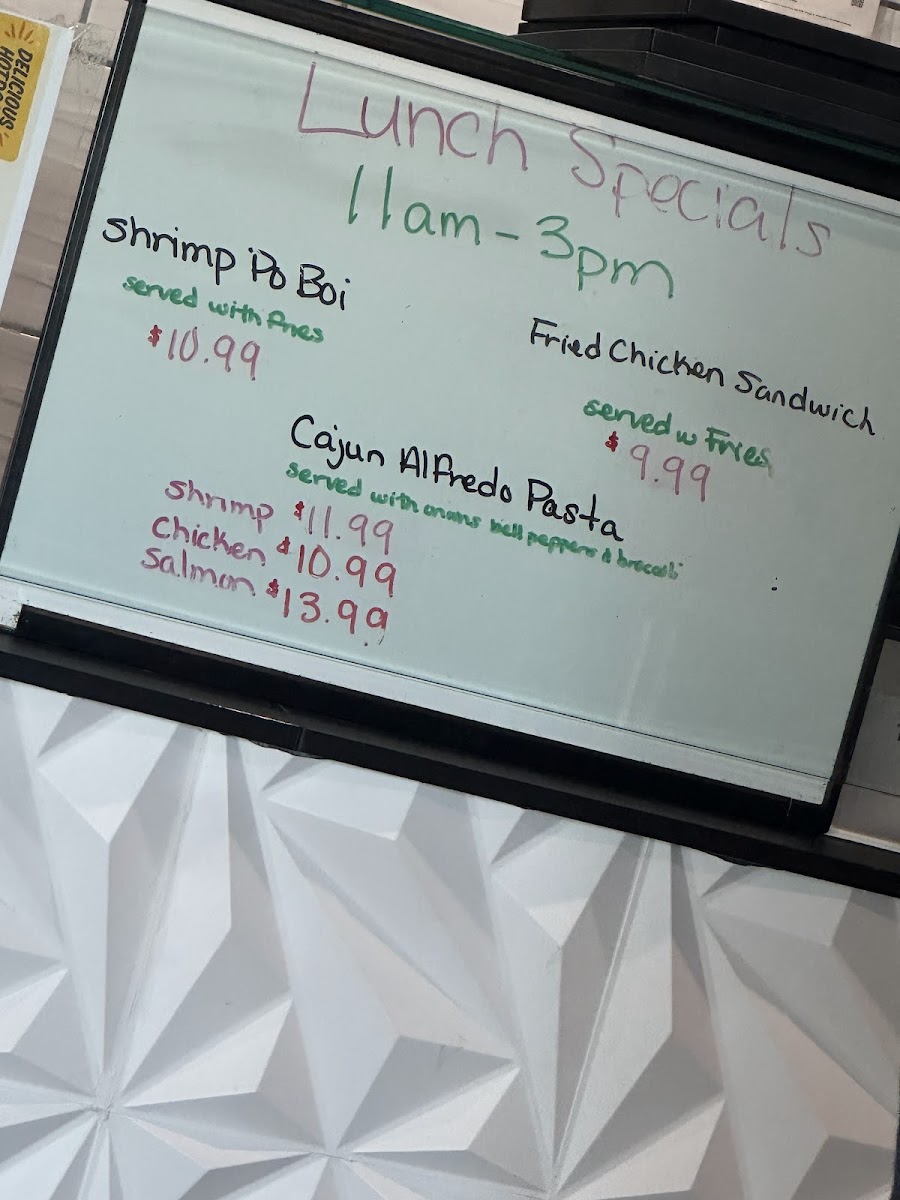 DELICIOUS
Lunch Specials
11am - 3pm
Shrimp Po Boi
served with fries
$10.99
Fried Chicken Sandwich
served w Fries
$9.99
Cajun Alfredo Pasta
served with onions bell peppers & broccoli
Shrimp $11.99
Chicken $10.99
Salmon $13.99